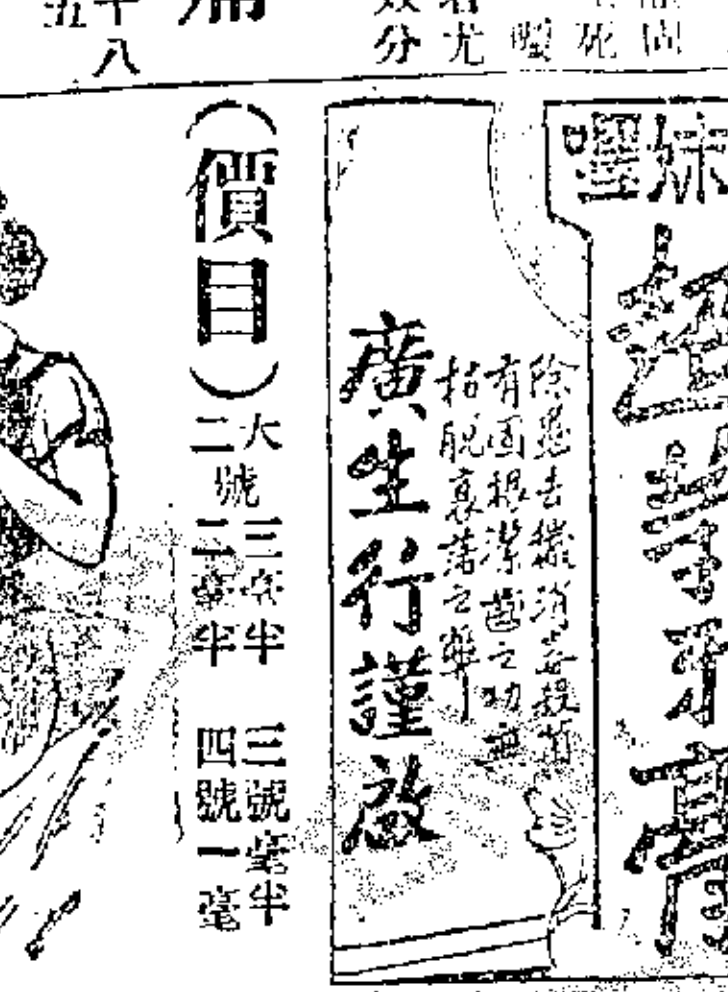 妹嚜
超等牙膏
除惡去穢消毒殺菌
有固根潔齒之功無
枯脫衰落之弊
廣生行謹啟
（價目）
大號三毫半
二號二毫半
三號毫半
四號一毫